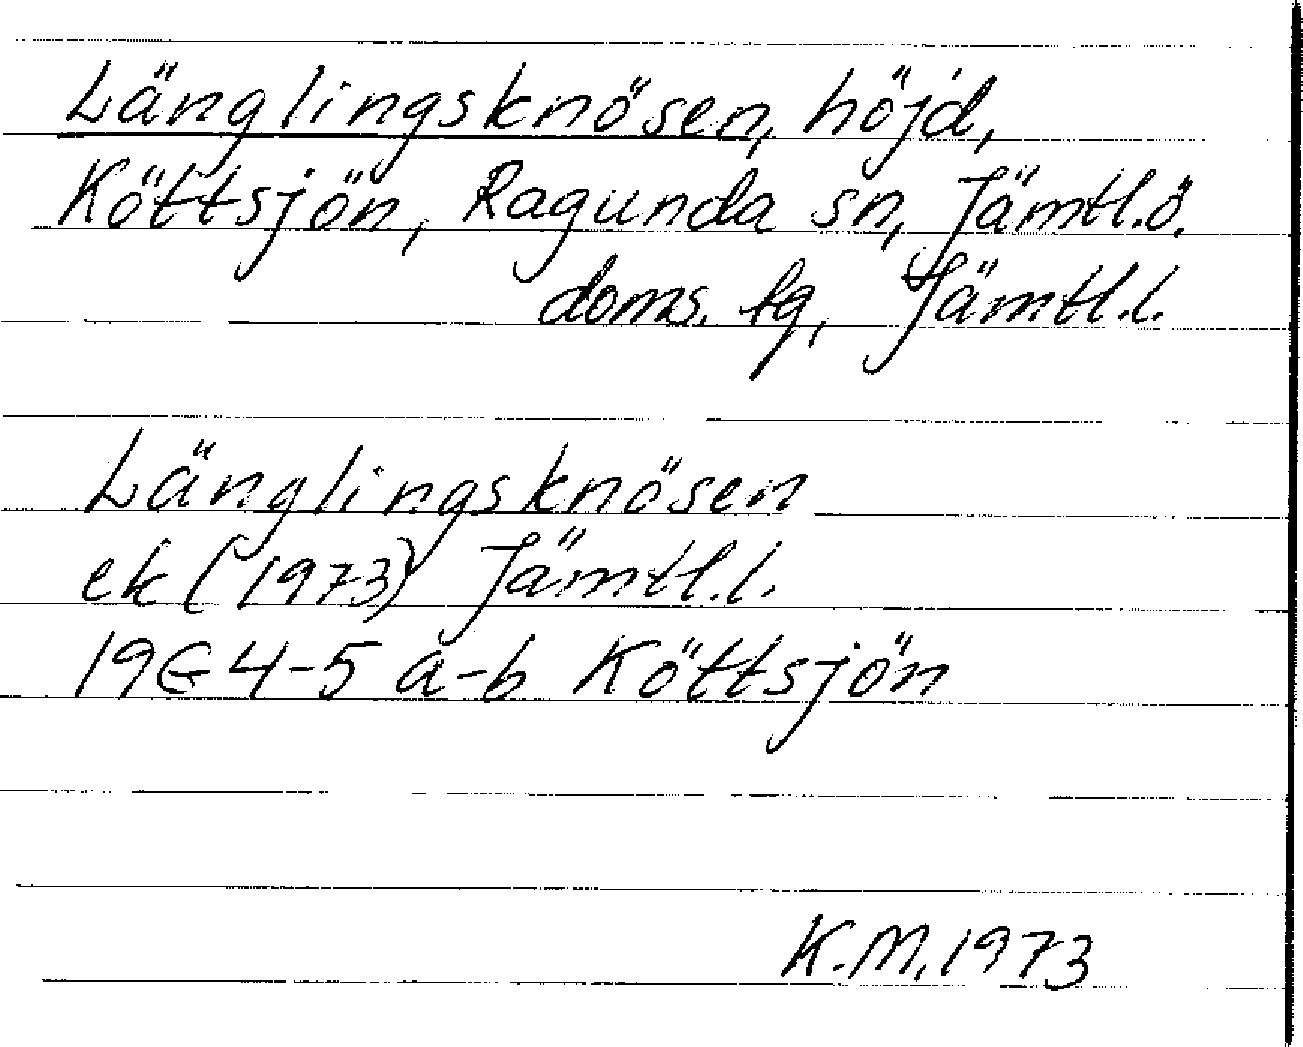 Länglingsknösen, höjd,
Köttsjön, Ragunda sn, Jämtl.ö.
doms. tg, Jämtl.l.
Länglingsknösen
ek (1973) Jämtl.l.
19G 4-5 a-b Köttsjön
K.M. 1973